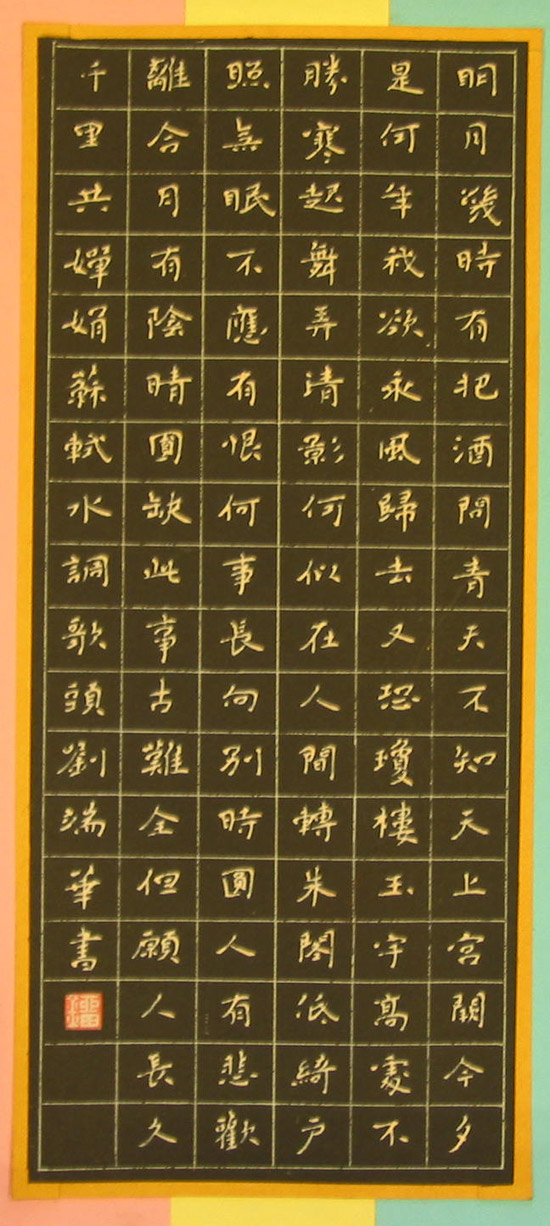 明月幾時有把酒問青天不知天上宮闕今夕
是何年我欲乘風歸去又恐瓊樓玉宇高處不
勝寒起舞弄清影何似在人間轉朱閣低綺戶
照無眠不應有恨何事長向別時圓人有悲歡
離合月有陰晴圓缺此事古難全但願人長久
千里共嬋娟蘇軾水調歌頭劉端華書